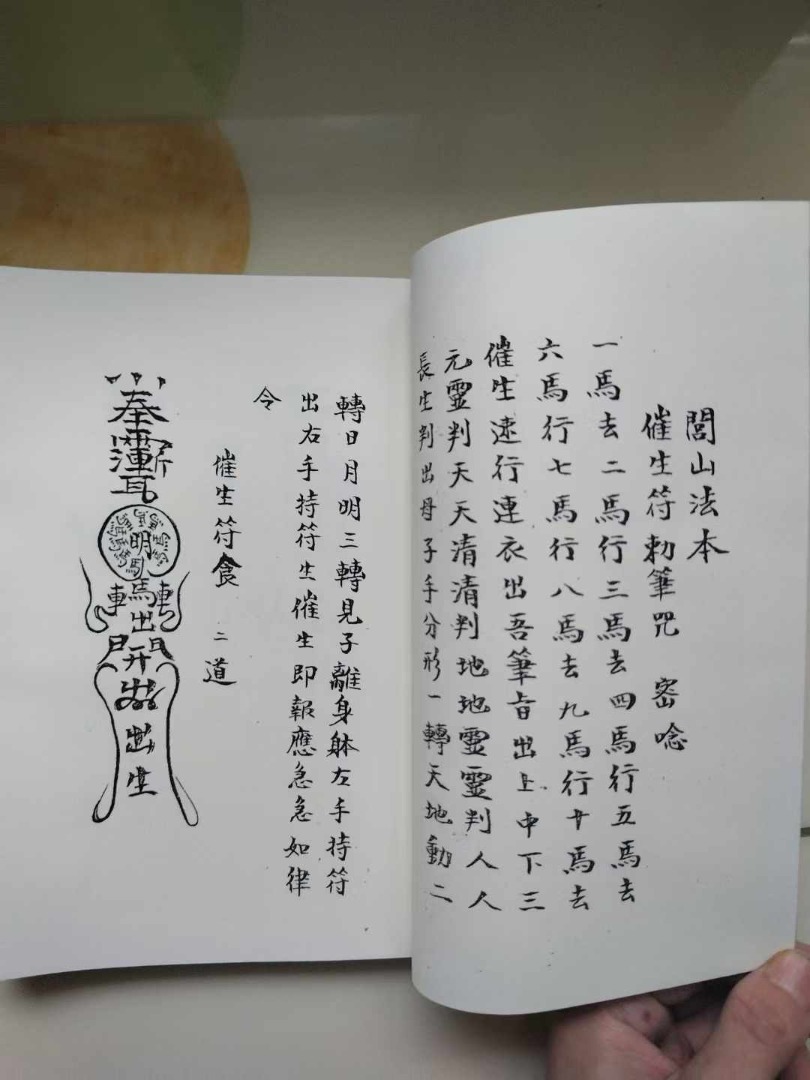 閭山法本
催生符勅筆咒　密唸
一馬去二馬行三馬去四馬行五馬去
六馬行七馬行八馬去九馬行十馬去
催生速行連衣出吾筆旨出上中下三
元靈判天天清清判地地靈靈判人人
長生判出母子手分形一轉天地動二
轉日月明三轉見子離身躰左手持符
出右手持符生催生即報應急急如律
令
催生符食　二道
奉
明
馬
轉馬轉
出
開
出生